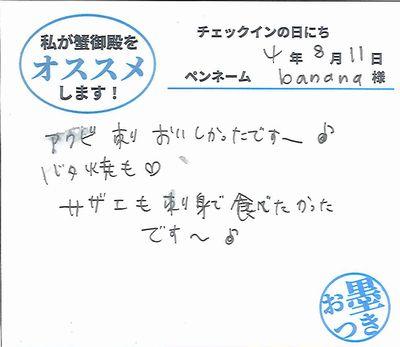 私が蟹御殿を
オススメ
します！
チェックインの日にち
4年8月11日
ペンネーム banana 様
アワビ 刺り おいしかったです〜♪
バタ焼も♡
サザエも刺り身で食べたかった
です〜♪
お墨つき